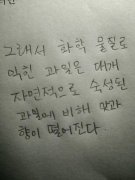 그래서 화학 물질로
익힌 과일은 대개
자연적으로 숙성된
과일에 비해 맛과
향이 떨어진다.